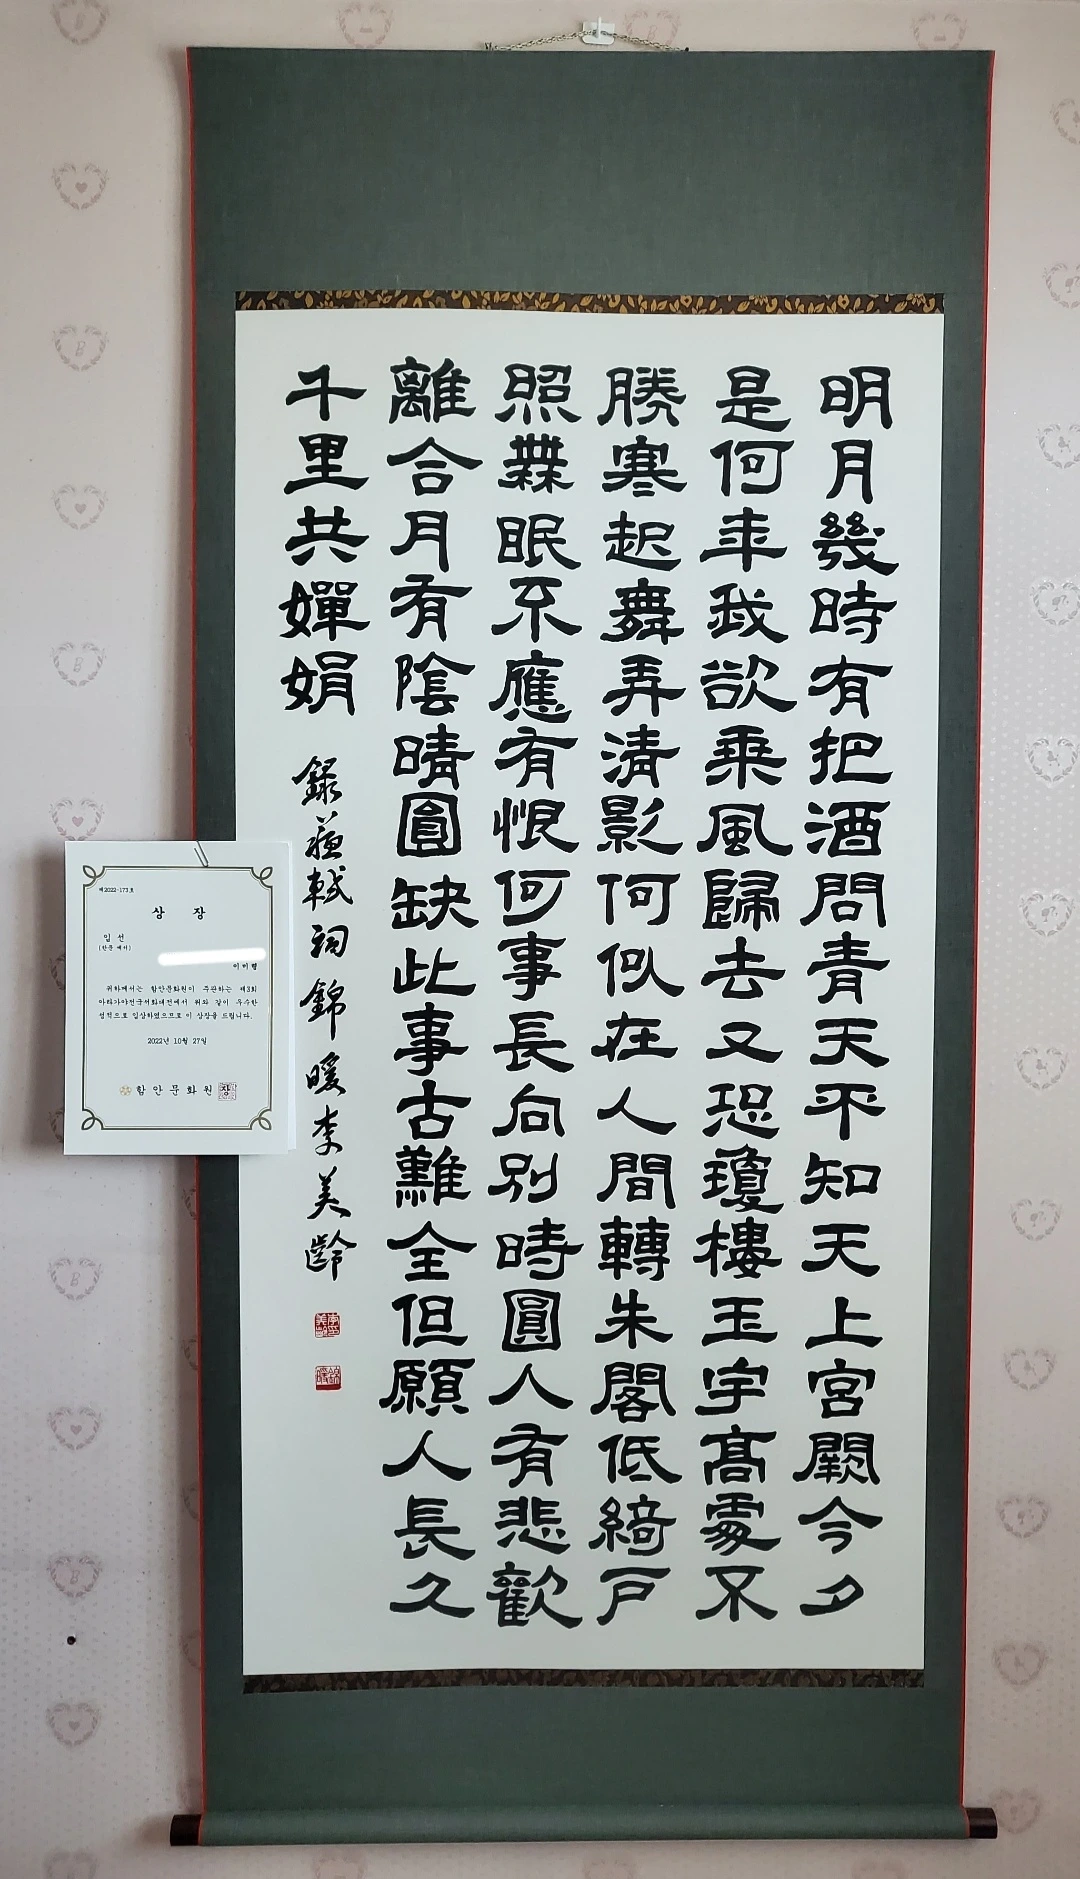 明月幾時有把酒問青天平知天上宮闕今夕
是何年我欲乘風歸去又恐瓊樓玉宇高處不
勝寒起舞弄清影何似在人間轉朱閣低綺戶
照無眠不應有恨何事長向別時圓人有悲歡
離合月有陰晴圓缺此事古難全但願人長久
千里共嬋娟 錄蘇軾詞 錦暖李美齡
제2022-173호
상 장
입 선
(한문 예서)
이미령
위하께서는 함안문화원이 주관하는 제3회
아라가야전국서화대전에서 위와 같이 우수한
성적으로 입상하였으므로 이 상장을 드립니다.
2022년 10월 27일
함안문화원장